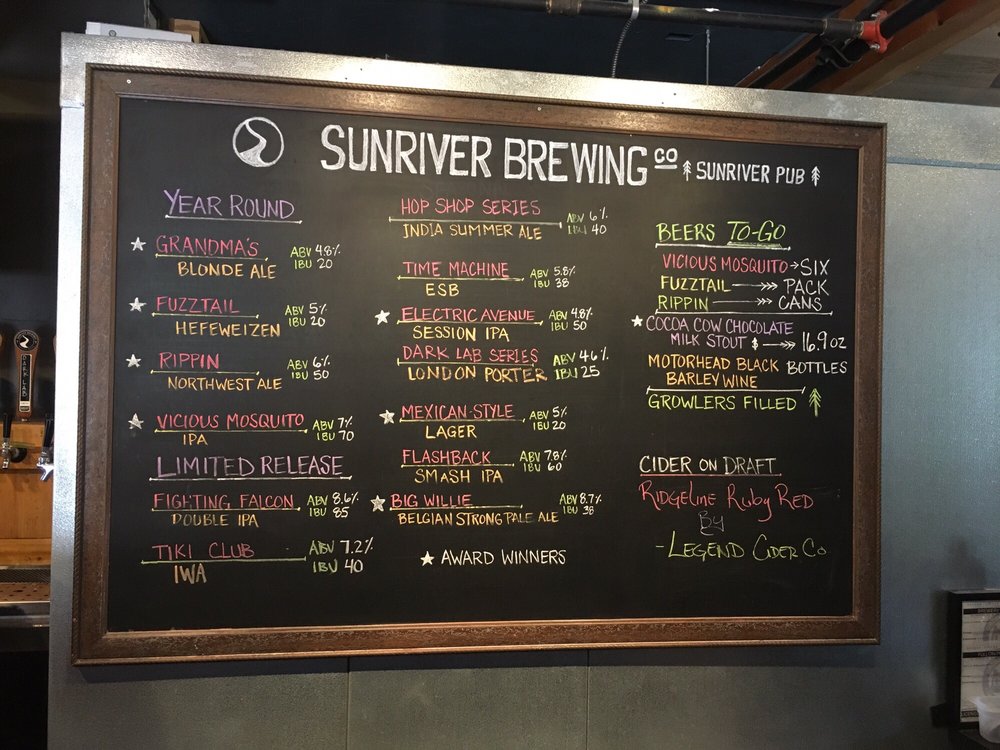 SUNRIVER BREWING CO SUNRIVER PUB
YEAR ROUND
GRANDMA'S ABV 4.8%
BLONDE ALE IBU 20
FUZZTAIL ABV 5%
HEFEWEIZEN IBU 20
RIPPIN ABV 6%
NORTHWEST ALE IBU 50
VICIOUS MOSQUITO ABV 7%
IPA IBU 70
LIMITED RELEASE
FIGHTING FALCON ABV 8.6%
DOUBLE IPA IBU 85
TIKI CLUB ABV 7.2%
IWA IBU 40
HOP SHOP SERIES ABV 6%
INDIA SUMMER ALE IBU 40
TIME MACHINE ABV 5.8%
ESB IBU 38
ELECTRIC AVENUE ABV 4.8%
SESSION IPA IBU 50
DARK LAB SERIES ABV 4.6%
LONDON PORTER IBU 25
MEXICAN-STYLE ABV 5%
LAGER IBU 20
FLASHBACK ABV 7.8%
SMASH IPA IBU 60
BIG WILLIE ABV 8.7%
BELGIAN STRONG PALE ALE IBU 38
AWARD WINNERS
BEERS TO-GO
VICIOUS MOSQUITO → SIX
FUZZTAIL → PACK
RIPPIN → CANS
COCOA COW CHOCOLATE
MILK STOUT $ → 16.9 OZ
MOTORHEAD BLACK BOTTLES
BARLEY WINE
GROWLERS FILLED
CIDER ON DRAFT
RIDGELINE RUBY RED
BY
- LEGEND CIDER CO
DARK LAB